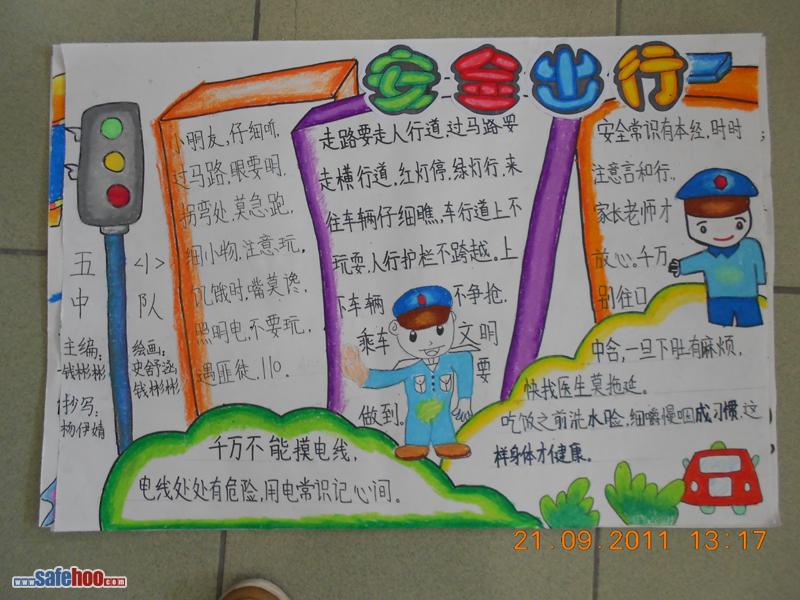 安全出行
五<1>
中队
主编:
钱彬彬
绘画:
史舒涵
钱彬彬
抄写:
杨伊婧
小朋友,仔细听,
过马路,眼要明,
拐弯处,莫急跑,
细小物,注意玩,
饥饿时,嘴莫谗,
照明电,不要玩,
遇匪徒,110.
千万不能摸电线,
电线处处有危险,用电常识记心间。
走路要走人行道,过马路要
走横行道,红灯停,绿灯行,来
往车辆仔细瞧,车行道上不
玩耍,人行护栏不跨越。上
下车辆不争抢,
乘车文明
要
做到。
安全常识有本经,时时
注意言和行,
家长老师才
放心。千万
别往口
中含,一旦下肚有麻烦,
快找医生莫拖延。
吃饭之前洗水脸,细嚼慢咽成习惯,这
样身体才健康。
21.09.2011 13:17
www.safehoo.com